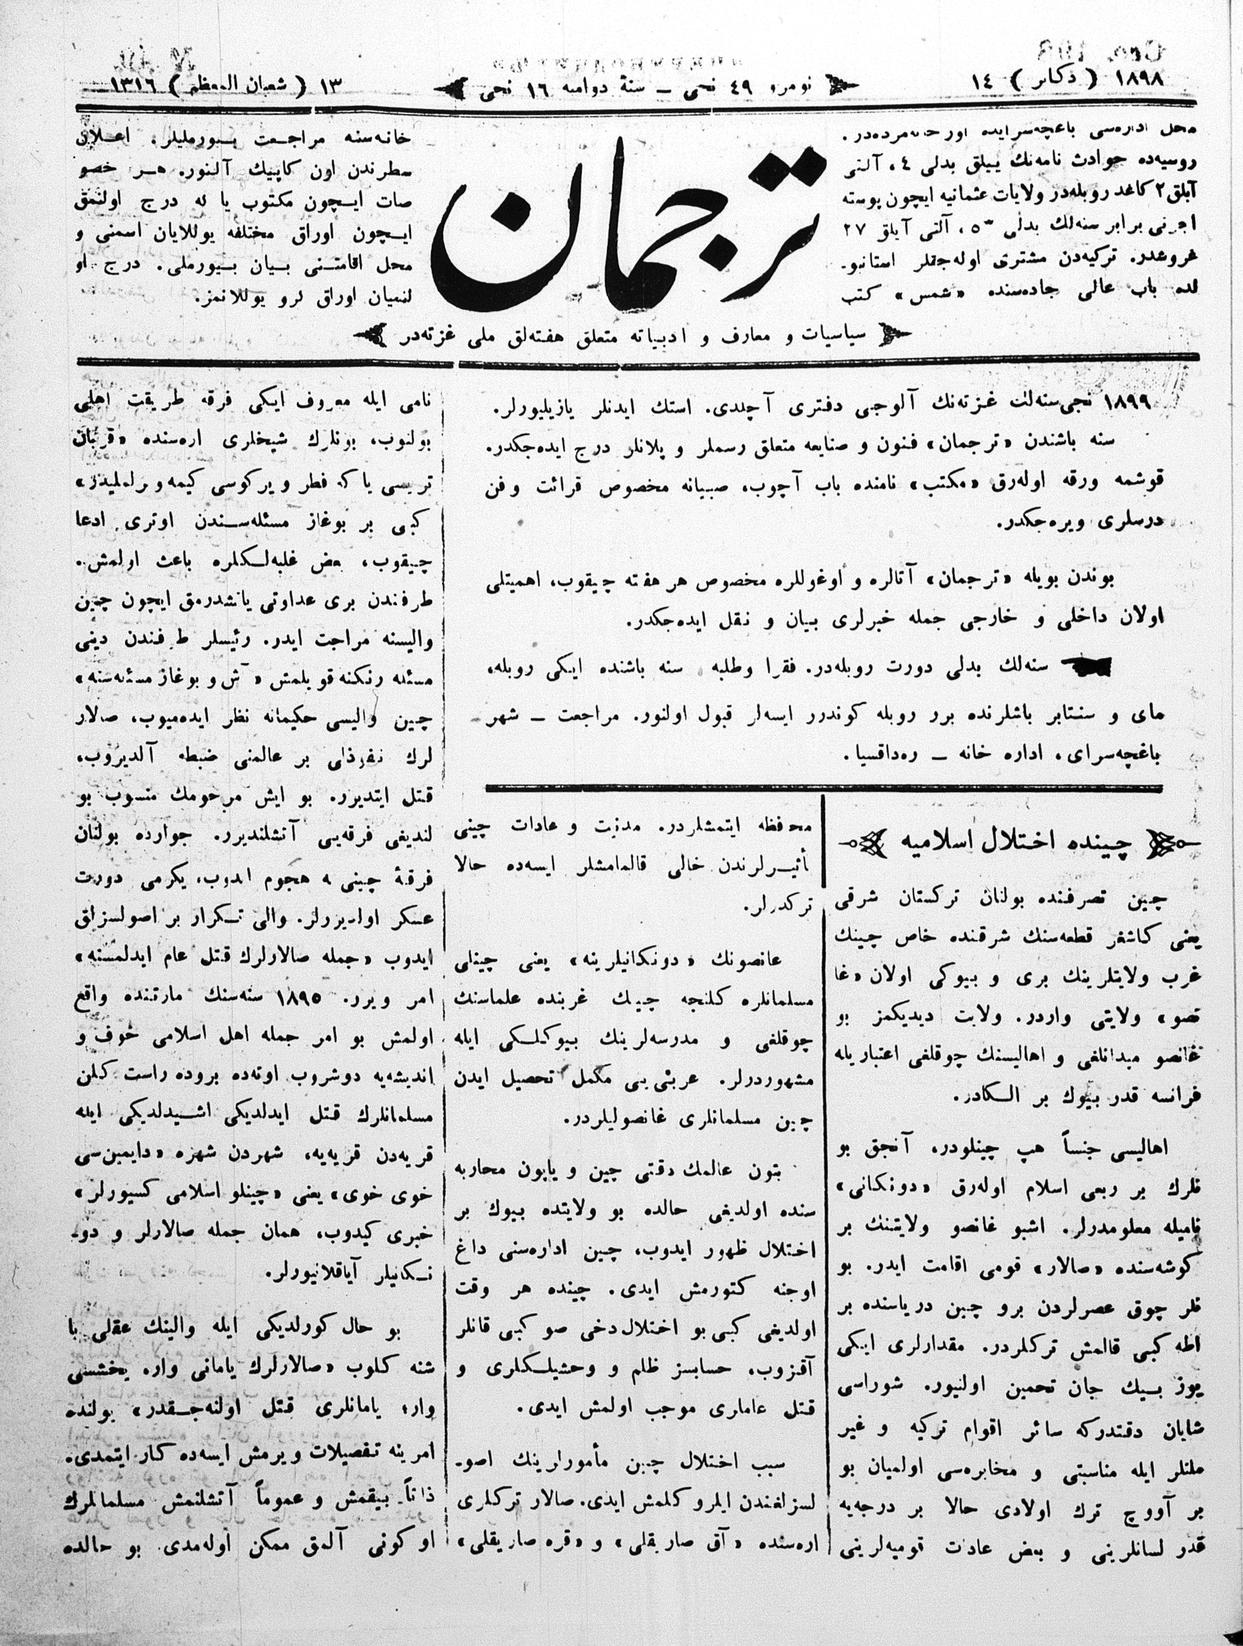 ١٨٩٨ ( دكابر ) ١٤
نومرو ٤٩ نجى ــ سنۀ دواميه ١٦ نجى
١٣ ( شعبان المعظم ) ١٣١٦
محل اداره‌سى باغچه‌سرايده اوز خانه‌مزده‌در.
روسيه‌ده حوادث نامه‌نك ييللق بدلى ٤، آلتى
آيلق ٢ كاغد روبله‌در ولايات عثمانيه ايچون پوسته
اجرتى برابر سنه‌لك بدلى ٥٠، آلتى آيلق ٢٧
غروشدر. تركيه‌دن مشترى اوله‌جقلر استانبو-
لده باب عالى جاده‌سنده «شمس» كتب
ترجمان
خانه‌سنه مراجعت بيورمليلر. اعلان
سطرندن اون كاپيك آلنور. هر خصو
صات ايچون مكتوب يا كه درج اولنمق
ايچون اوراق مختلفه يوللايان اسمنى و
محل اقامتنى بيان بيورملى. درج او
لنميان اوراق كرو يوللانمز.
سياسيات و معارف و ادبياته متعلق هفته‌لق ملى غزته‌در
١٨٩٩ نجى سنه‌لك غزته‌نك آلوجى دفترى آچلدى. استك ايدنلر يازيليورلر.
سنه باشندن «ترجمان» فنون و صنايعه متعلق رسملر و پلانلر درج ايده‌جكدر.
قوشمه ورقه اوله‌رق «مكتب» نامنده باب آچوب، صبيانه مخصوص قرائت و فن
درسلرى ويره‌جكدر.
بوندن بويله «ترجمان» آتالره و اوغوللره مخصوص هر هفته چيقوب، اهميتلى
اولان داخلى و خارجى جمله خبرلرى بيان و نقل ايده‌جكدر.
سنه‌لك بدلى دورت روبله‌در. فقرا و طلبه سنه باشنده ايكى روبله،
ماى و سنتابر باشلرنده برر روبله كوندرر ايسه‌لر قبول اولنور. مراجعت ــ شهر
باغچه‌سراى، اداره خانه ــ ره‌داقسيا.
چينده اختلال اسلاميه
چين تصرفنده بولنان تركستان شرقى
يعنى كاشغر قطعه‌سنك شرقنده خاص چينك
غرب ولايتلرينك برى و بيوكى اولان «غا
نصو» ولايتى واردر. ولايت ديديكمز بو
غانصو ميدانلغى و اهاليسنك چوقلغى اعتباريله
فرانسه قدر بيوك بر الكادر.
اهاليسى جنساً هپ چينلودر، آنجق بو
نلرك بر ربعى اسلام اوله‌رق «دونكانى»
ناميله معلومدرلر. اشبو غانصو ولايتنك بر
كوشه‌سنده «صالار» قومى اقامت ايدر. بو
نلر چوق عصرلردن برو چين درياسنده بر
اطه كبى قالمش تركلردر. مقدارلرى ايكى
يوز بيك جان تخمين اولنيور. شوراسى
شايان دقتدركه سائر اقوام تركيه و غير
ملتلر ايله مناسبتى و مخابره‌سى اولميان بو
بر آووچ ترك اولادى حالا بر درجه‌يه
قدر لسانلرينى و بعض عادت قوميه‌لرينى
محافظه ايتمشلردر. مدنيت و عادات چينى
تأثيرلرندن خالى قالمامشلر ايسه‌ده حالا
تركدرلر.
غانصونك «دونكانيلرينه» يعنى چينلى
مسلمانلره كلنجه چينك غربنده علماسنك
چوقلغى و مدرسه‌لرينك بيوكلكى ايله
مشهوردرلر. عربئى يى مكمل تحصيل ايدن
چين مسلمانلرى غانصوليلردر.
بتون عالمك دقتى چين و ياپون محاربه
سنده اولديغى حالده بو ولايتده بيوك بر
اختلال ظهور ايدوب، چين اداره‌سنى داغ
اوجنه كتورمش ايدى. چينده هر وقت
اولديغى كبى بو اختلال دخى صو كبى قانلر
آقزوب، حسابسز ظلم و وحشيلكلرى و
قتل عاملرى موجب اولمش ايدى.
سبب اختلال چين مأمورلرينك اصو-
لسزلغندن ايلرو كلمش ايدى. صالار تركلرى
اره‌سنده «آق صاريقلى» و «قره صاريقلى»
نامى ايله معروف ايكى فرقه طريقت اهلى
بولنوب، بونلرك شيخلرى اره‌سنده «قربان
تريسى يا كه فطر ويركوسى كيمه ويرلمليدر»
كبى بر بوغاز مسئله‌سندن اوترى ادعا
چيقوب، بعض غلبه‌لكلره باعث اولمش.
طرفندن برى عداوتى ياتشدرمق ايچون چين
واليسنه مراجعت ايدر. رئيسلر طرفندن دينى
مسئله رنكنه قويلمش «آش و بوغاز مسئله‌سنه»
چين واليسى حكيمانه نظر ايده‌ميوب، صالار
لرك نفوذلى بر عالمنى ضبطه آلديروب،
قتل ايتديرر. بو ايش مرحومك منسوب بو
لنديغى فرقه‌يى آتشلنديرر. جوارده بولنان
فرقۀ چينى‌يه هجوم ايدوب، يكرمى دورت
عسكر اولديررلر. والى تكرار بر اصولسزلق
ايدوب «جمله صالارلرك قتل عام ايدلمسنه»
امر ويرر. ١٨٩٥ سنه‌سنك مارتنده واقع
اولمش بو امر جمله اهل اسلامى خوف و
انديشه‌يه دوشروب اوته‌ده بروده راست كلن
مسلمانلرك قتل ايدلديكى اشيدلديكى ايله
قريه‌دن قريه‌يه، شهردن شهره «دايمين‌سى
خوى خوى» يعنى «چينلو اسلامى كسيورلر»
خبرى كيدوب، همان جمله صالارلر و دو-
نكانيلر آياقلانيورلر.
بو حال كورلديكى ايله والينك عقلى با
شنه كلوب «صالارلرك يامانى وار. يخشسى
وار؛ يامانلرى قتل اولنه‌جقدر» يولنده
امرينه تفصيلات ويرمش ايسه‌ده كار ايتمدى.
ذاتاً بيقمش و عموماً آتشلنمش مسلمانلرك
اوكونى آلمق ممكن اوله‌مدى. بو حالده